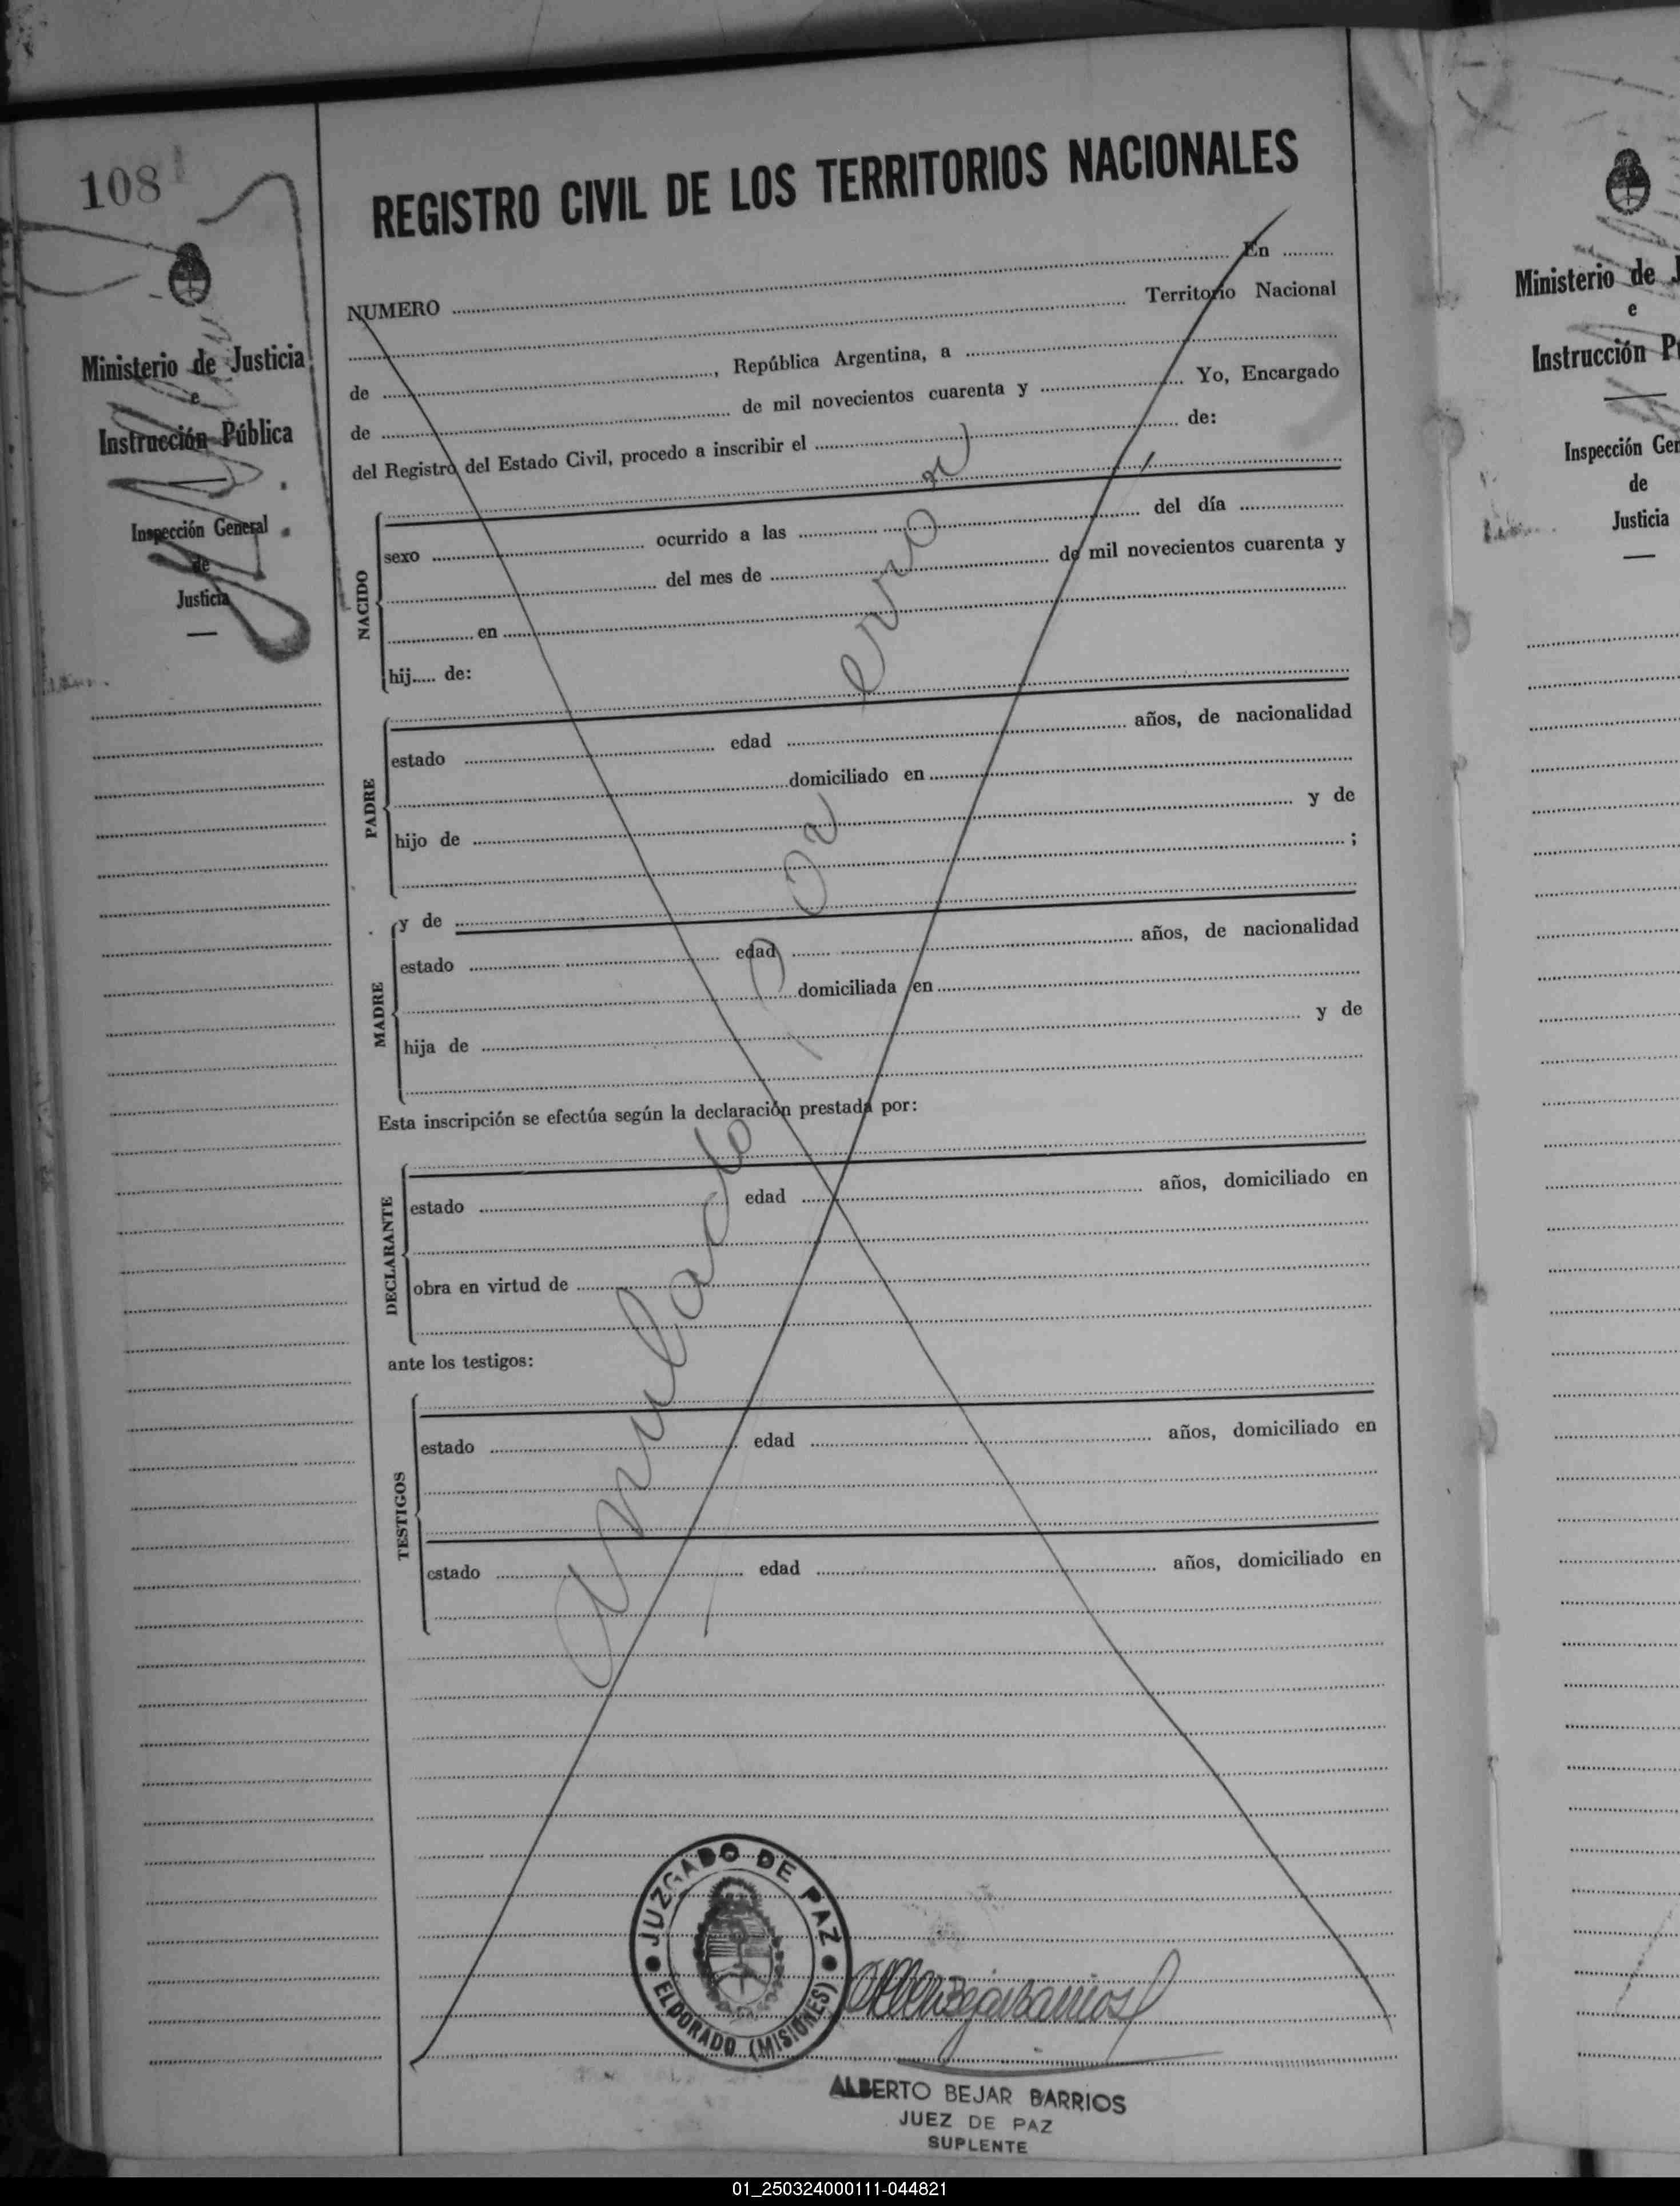 108
Ministerio de Justicia
e
Instrucción Pública
Inspección General
de
Justicia
REGISTRO CIVIL DE LOS TERRITORIOS NACIONALES
NUMERO ........ En ........
........ Territorio Nacional
de ........, República Argentina, a ........
de ........ de mil novecientos cuarenta y ........ Yo, Encargado
del Registro del Estado Civil, procedo a inscribir el ........ de:
NACIDO
sexo ........ ocurrido a las ........ del día ........
........ del mes de ........ de mil novecientos cuarenta y
........ en ........
hij..... de:
PADRE
estado ........ edad ........ años, de nacionalidad
........ domiciliado en ........
hijo de ........ y de
........ ;
MADRE
y de ........
estado ........ edad ........ años, de nacionalidad
........ domiciliada en ........
hija de ........ y de
Esta inscripción se efectúa según la declaración prestada por:
DECLARANTE
estado ........ edad ........ años, domiciliado en
obra en virtud de ........
ante los testigos:
TESTIGOS
estado ........ edad ........ años, domiciliado en
estado ........ edad ........ años, domiciliado en
Anulado por error
JUZGADO DE PAZ
ELDORADO (MISIONES)
ALBERTO BEJAR BARRIOS
JUEZ DE PAZ
SUPLENTE
Ministerio de J
e
Instrucción P
Inspección Gen
de
Justicia
01_250324000111-044821